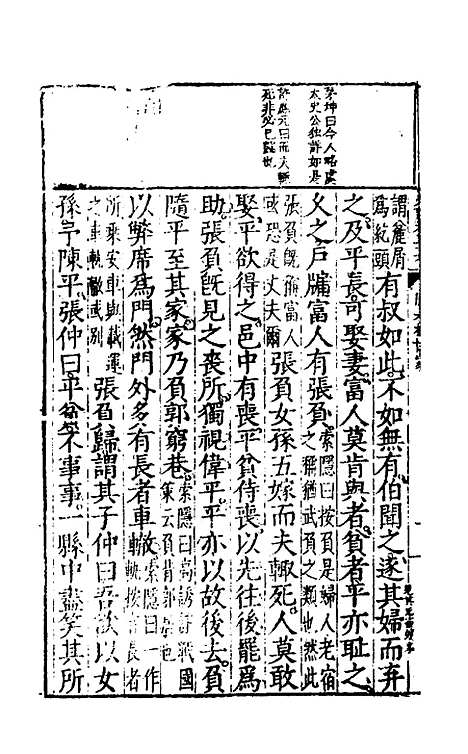 茅坤曰今人略處
太史公独詳如是
許應元曰五而夫輒
死非必已醮也
謂麤屑
為紇頭
有叔如此不如無有伯聞之逐其婦而弃
之及平長可娶妻富人莫肯與者貧者平亦耻之
久之戶牖富人有張負
索隱曰按負是婦人老宿
之稱猶武負之類也然此
張負既稱富人
或恐是丈夫爾
張負女孫五嫁而夫輒死人莫敢
娶平欲得之邑中有喪平貧侍喪以先往後罷為
助張負既見之喪所獨視偉平平亦以故後去負
隨平至其家家乃負郭窮巷
索隱曰高誘註戰國
策云負背郭居也
以弊席為門然門外多有長者車轍
索隱曰一作
軌按言長者
所乘安車與載運
之車軌轍或別
張負歸謂其子仲曰吾欲以女
孫予陳平張仲曰平貧不事事一縣中盡笑其所